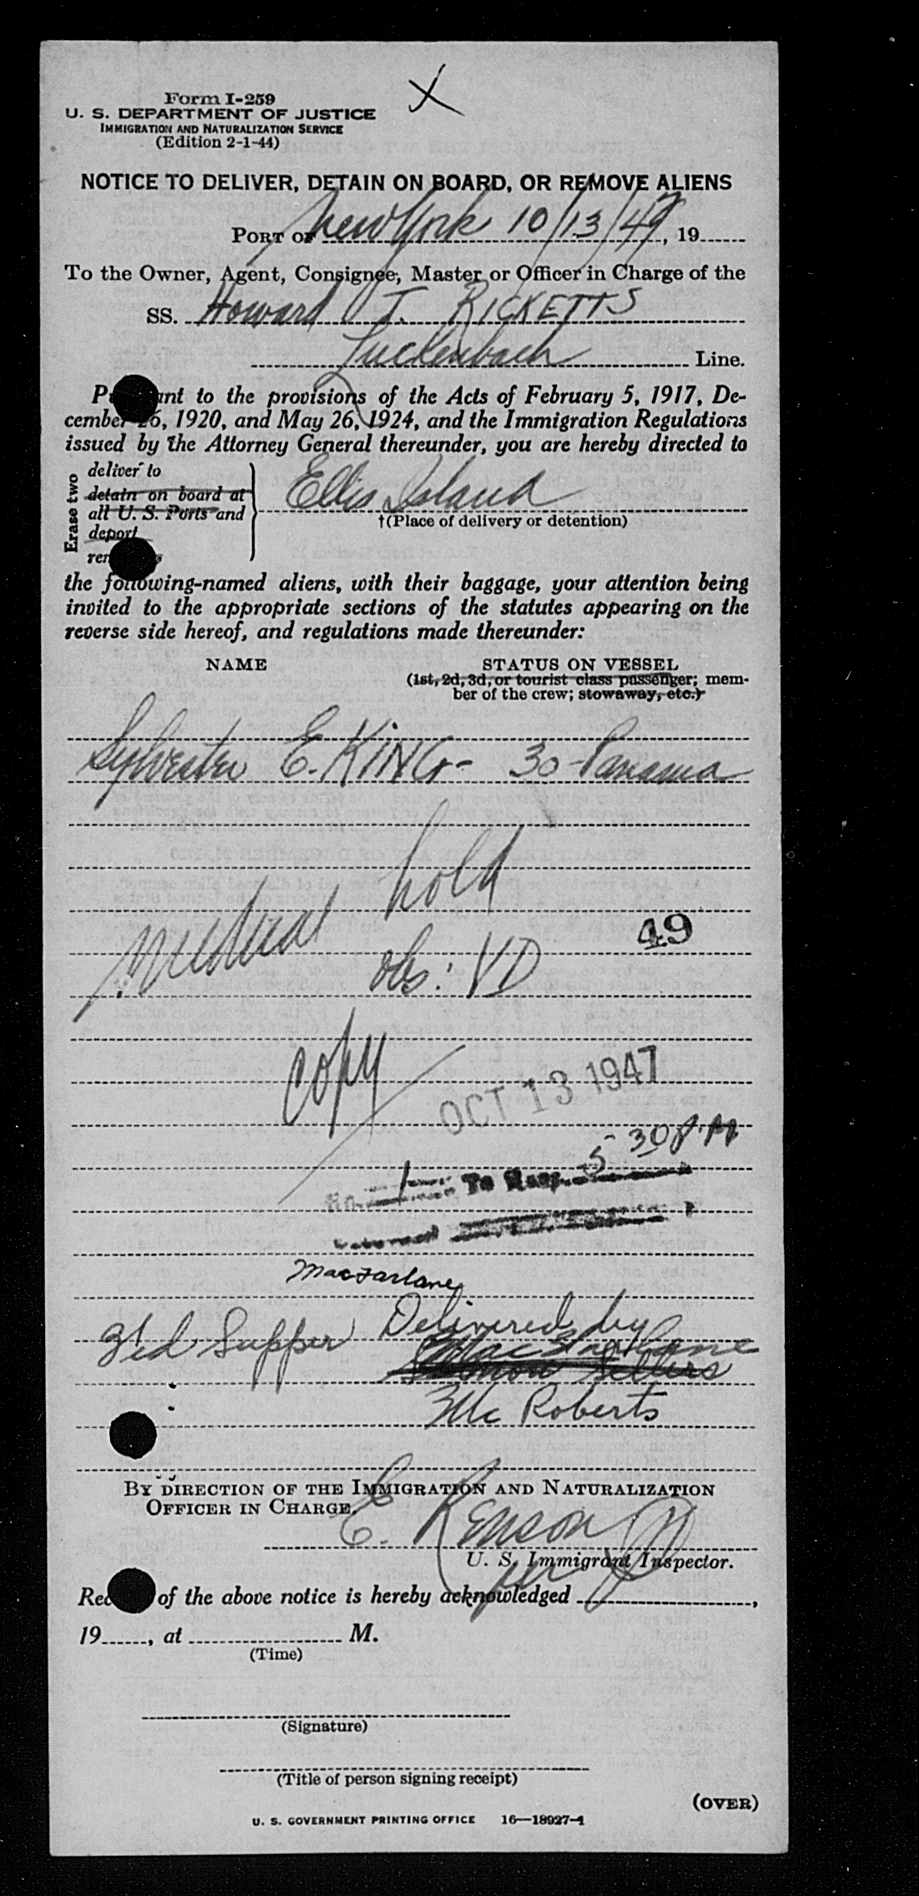 X
Form I-259
U. S. DEPARTMENT OF JUSTICE
IMMIGRATION AND NATURALIZATION SERVICE
(Edition 2-1-44)
NOTICE TO DELIVER, DETAIN ON BOARD, OR REMOVE ALIENS
PORT OF New York 10/13/47, 19
To the Owner, Agent, Consignee, Master or Officer in Charge of the
SS. Howard T. RICKETTS
Luckenbach Line.
P ant to the provisions of the Acts of February 5, 1917, De-
cember 26, 1920, and May 26, 1924, and the Immigration Regulations
issued by the Attorney General thereunder, you are hereby directed to
Erase two
deliver to
detain on board at
all U. S. Ports and
deport
rem s
Ellis Island
†(Place of delivery or detention)
the following-named aliens, with their baggage, your attention being
invited to the appropriate sections of the statutes appearing on the
reverse side hereof, and regulations made thereunder:
NAME STATUS ON VESSEL
(1st, 2d, 3d, or tourist class passenger; mem-
ber of the crew; stowaway, etc.)
Sylvester E. KING - 30 - Panama
Medical hold
49
obs: VD
copy
OCT 13 1947
5 30 P.M
1 To Hosp.
MacFarlane
Delivered by
3'd Supper MacFarlane
Sellers
McRoberts
BY DIRECTION OF THE IMMIGRATION AND NATURALIZATION
OFFICER IN CHARGE.
E. Renson
per
U. S. Immigrant Inspector.
Rec of the above notice is hereby acknowledged ,
19 , at M.
(Time)
(Signature)
(Title of person signing receipt)
(OVER)
U. S. GOVERNMENT PRINTING OFFICE 16—18927-1